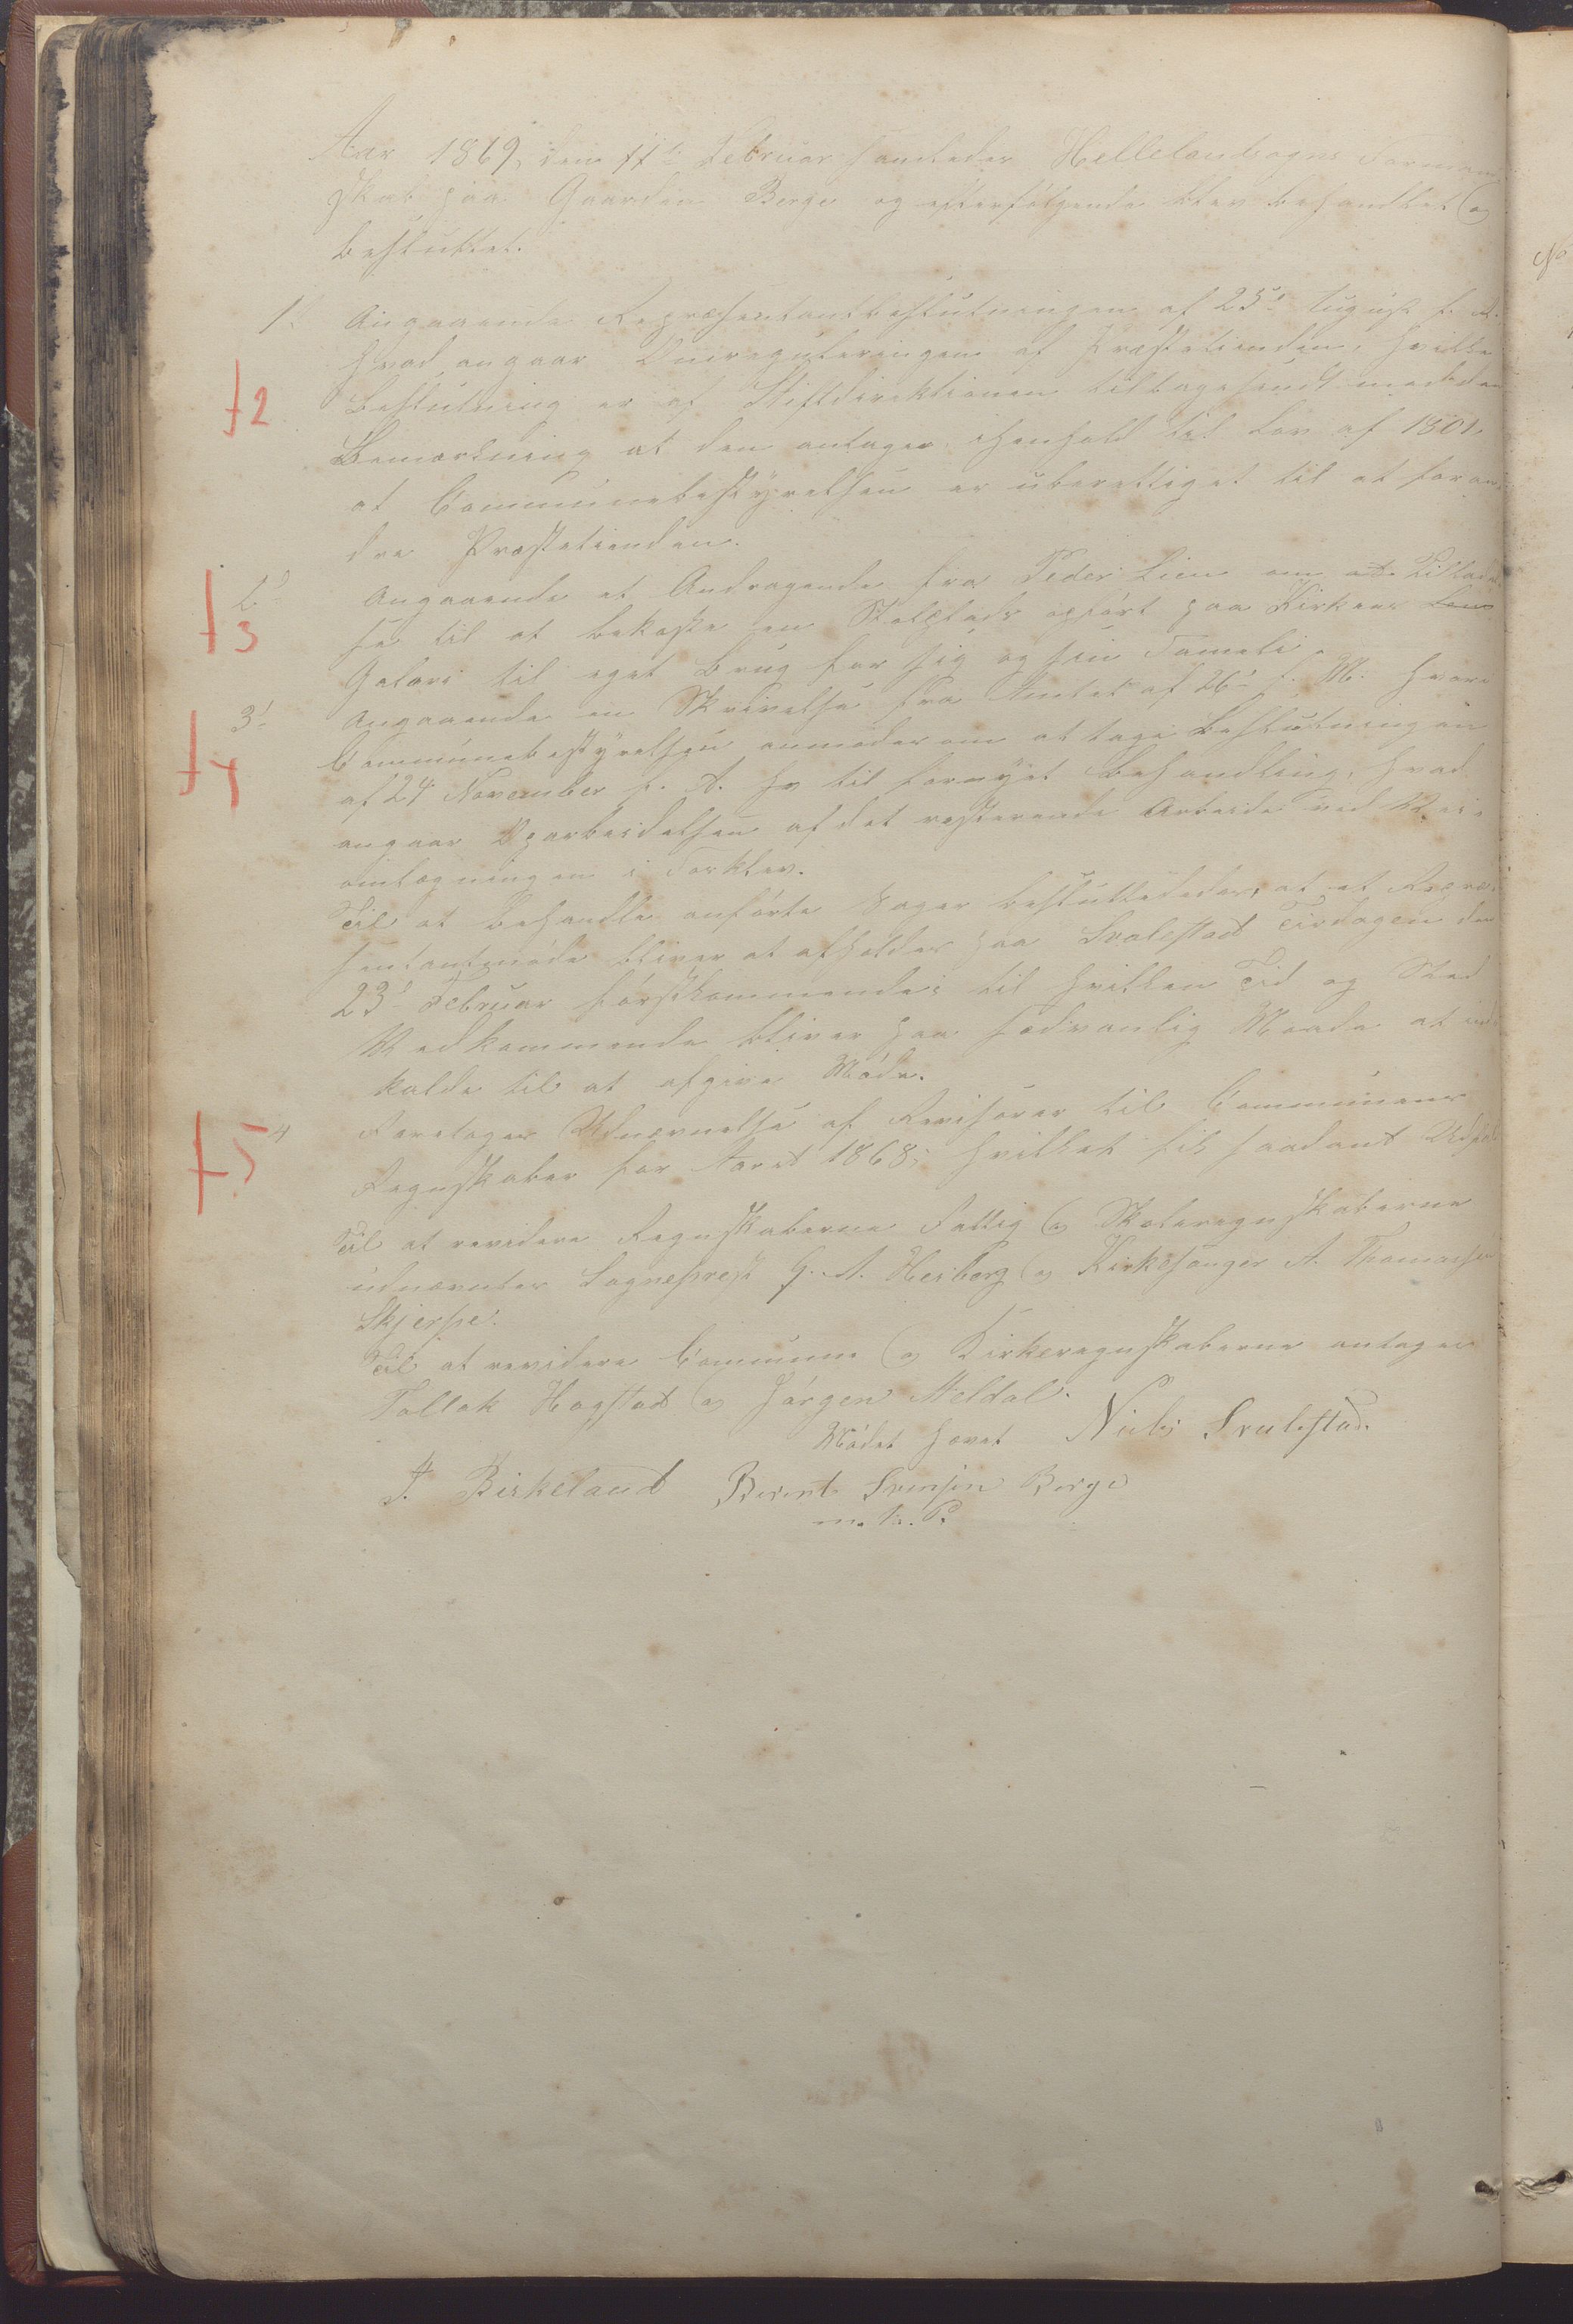 Aar 1869, den 11te Februar samledes Hellelandsogns Forman
skab paa Gaarden Berge og efterfølgende blev behandlet og
besluttet.
1. Angaaende Repræsentantbeslutningen af 25de August f. A.
hvad angaar Omreguleringen af Præstetienden, hvilke
†2 Beslutning er af Stiftdirektionen tilbagesendt med den
Bemærkning at den antager ihenhold til Lov af 1801
at Communebestyrelsen er uberettiget til at foran
dre Præstetienden.
2. Angaaende et Andragende fra Peder Lien om at Tillad
†3 se til at bekoste en Stolplads opført paa Kirkens
Galeri til eget Brug for sig og sin Fameli.
3. Angaaende en Skrivelse fra Amtet af 26de f. M. hvori
†4 Communebestyrelsen anmodes om at tage Beslutningen
af 24 November f. A. til fornyet Behandling, hvad
angaar Oparbeidelsen af det resterende Arbeide ved Vei-
omlægningen i Torklev.
Til at behandle anførte Sager besluttedes, at et Repræ
sentantmøde bliver at afholdes paa Svalestad Tirsdagen den
23de Februar førstkommende, til hvilken Tid og Sted
Vedkommende bliver paa sædvanlig Maade at ind
kalde til at afgive Møde.
†5 4 Foretages Udnævnelse af Revisorer til Communens
Regnskaber for Aaret 1868, hvilket fik saadant Udfald
Til at revidere Regnskaberne Fattig og Skoleregnskaberne
udnævntes Sogneprest G. A. Heiberg og Kirkesanger A. Thomassen
Skjerpe.
Til at revidere Commune og Kirkeregnskaberne antages
Tollak Hogstad og Jørgen Meldal.
Mødet hævet Niels Svalestad.
T. Birkeland Berent Svensen Berge
m. p. P.